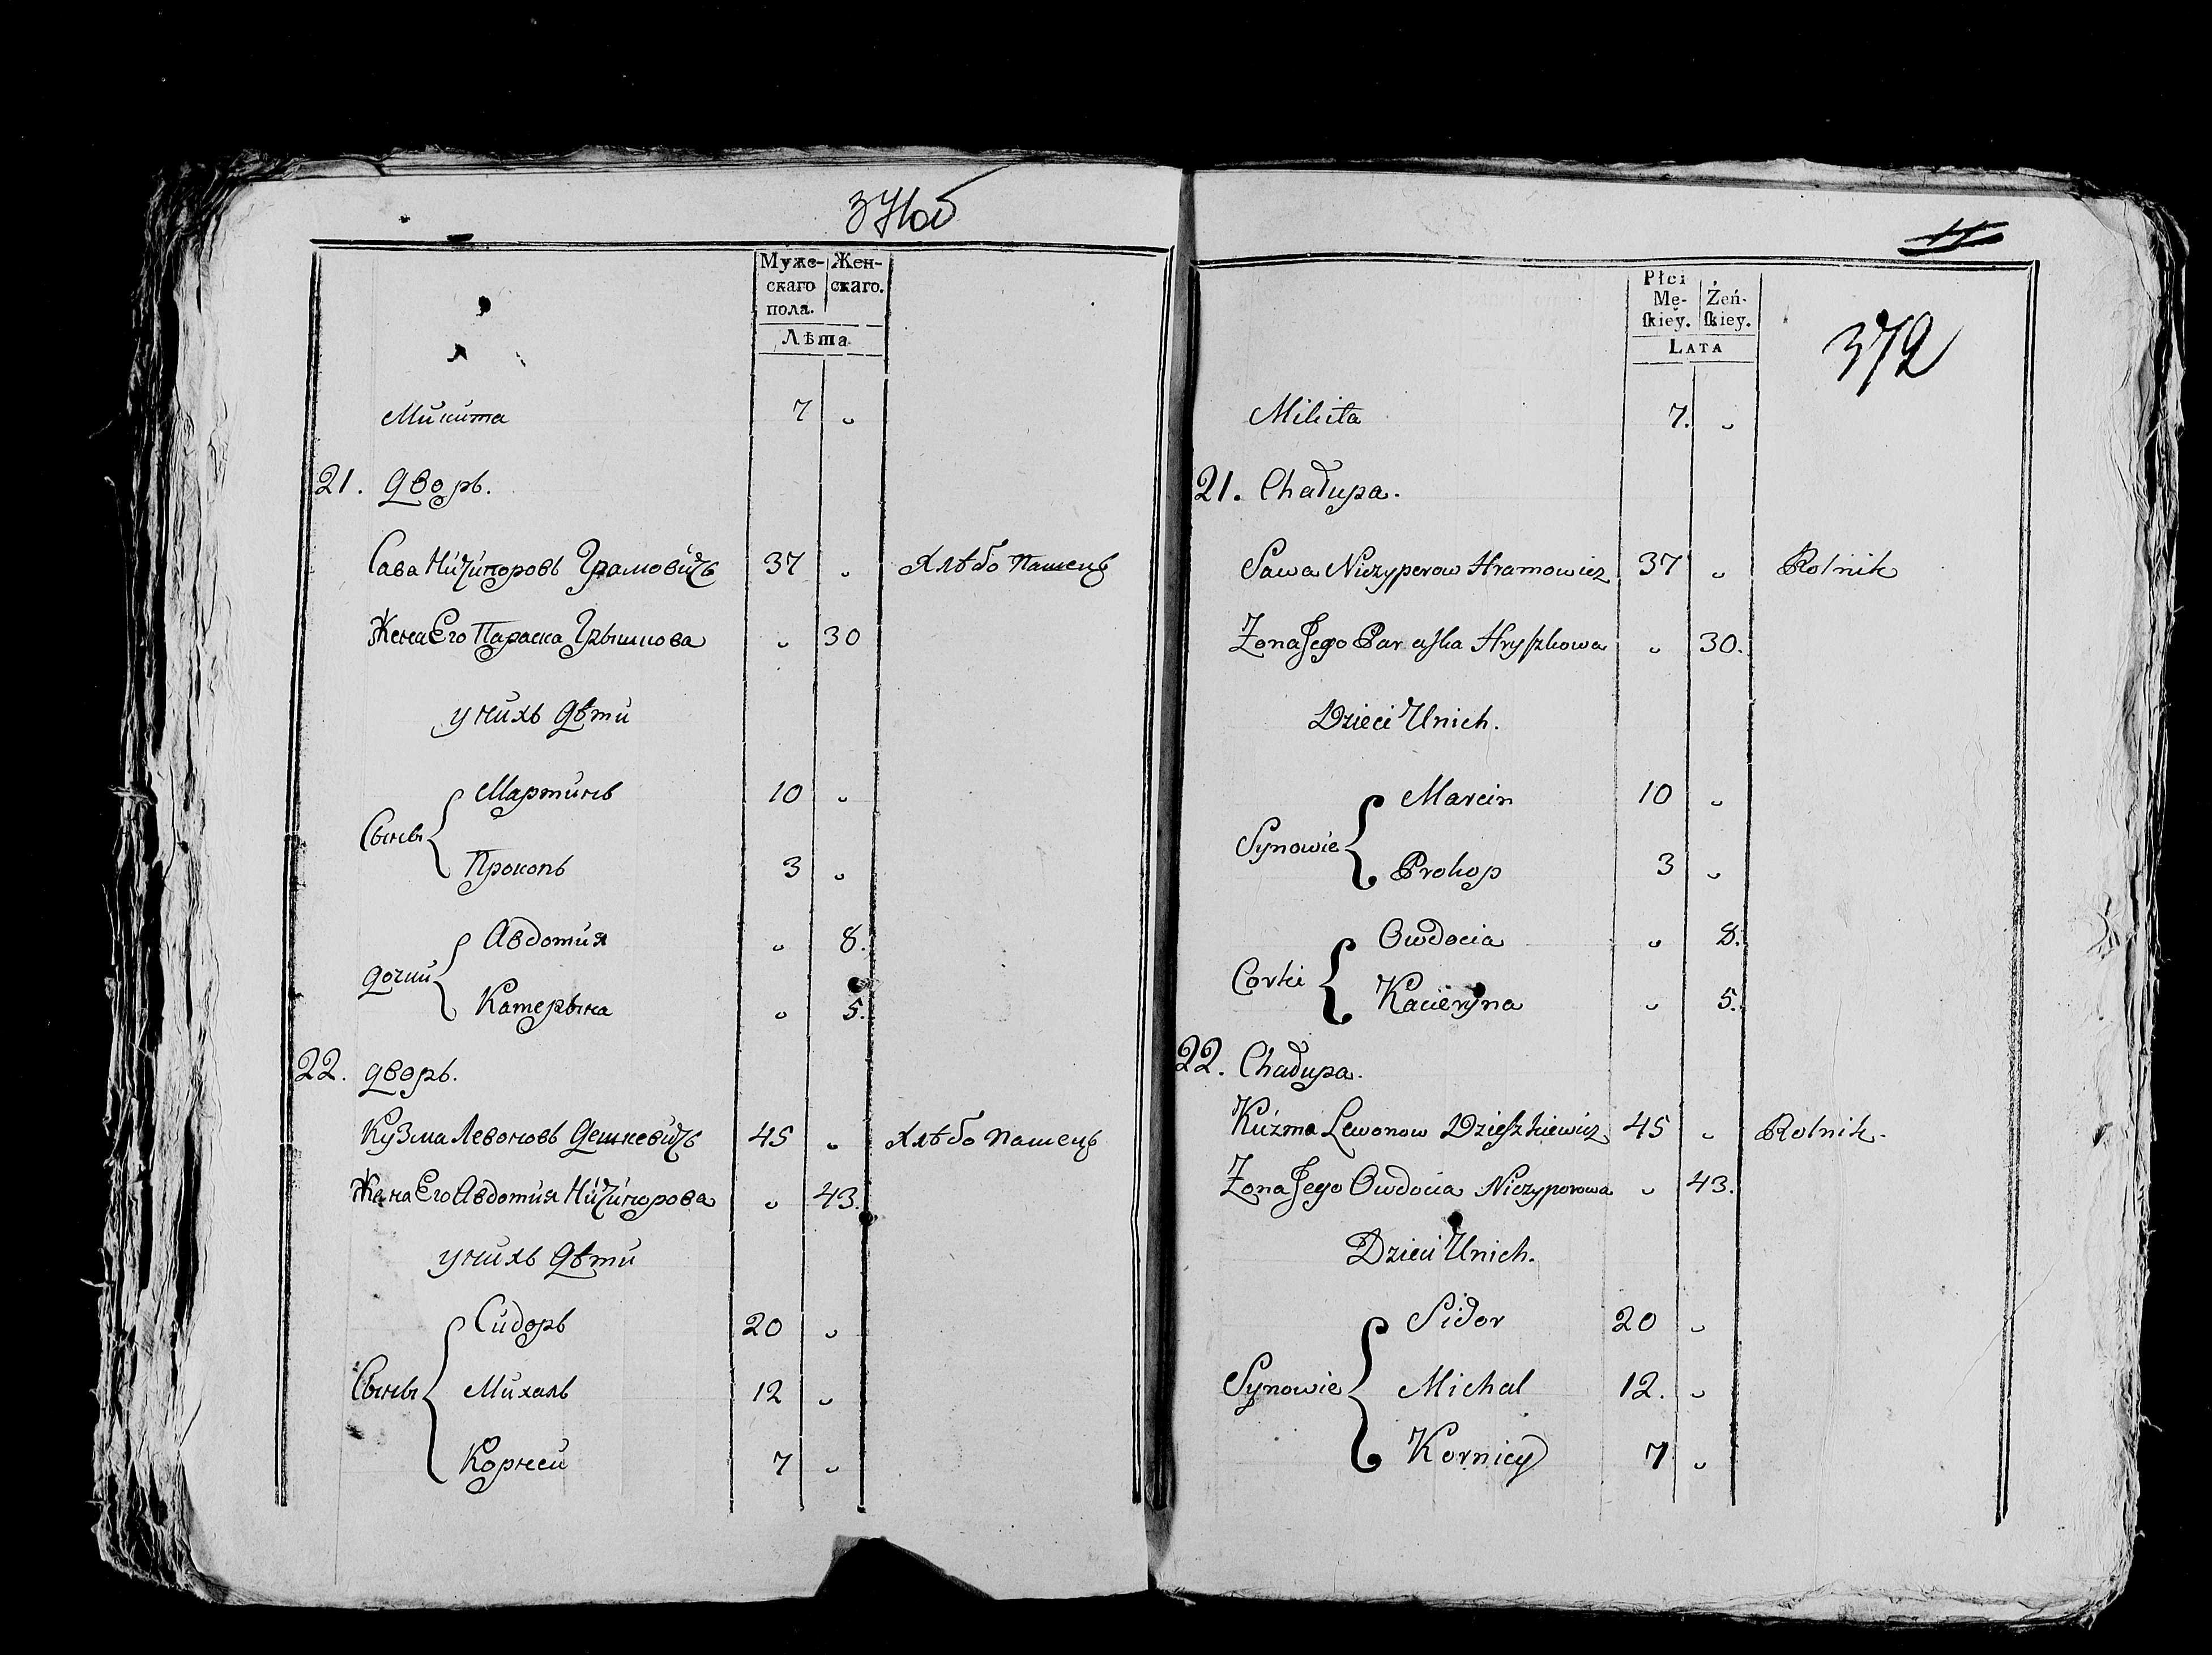 371об
Муже- Жен-
скаго скаго.
пола.
Лѣта
Микита 7 "
21. дворъ.
Сава Ничипоровъ Грамовичъ 37 " Хлѣбо пашецъ
Жена Его Параска Грышкова " 30
у нихъ дѣти
Мартинъ 10 "
Сыны
Прокопъ 3 "
Авдотия " 8.
дочки
Катерына " 5.
22. дворъ.
Кузма Левоновъ Дешкевичъ 45 " Хлѣбо пашецъ
Жена Его Авдотия Ничипорова " 43.
у нихъ дѣти
Сидоръ 20 "
Сыны Михалъ 12 "
Корнеи 7 "
11
Płci
Mę- Żeń-
ſkiey. ſkiey.
LATA
372
Mikita 7. "
21. Chałupa.
Sawa Niczyperow Hramowicz 37 " Rolnik
Zona Jego Paraſka Hryſzkowa " 30.
Dzieci Unich.
Marcin 10 "
Synowie
Prokop 3 "
Owdocia " 8.
Corki
Kacieryna " 5.
22. Chałupa.
Kuźma Lewonow Dzieſzkiewicz 45 " Rolnik.
Zona Jego Owdocia Niczyporowa " 43.
Dzieci Unich.
Sidor 20 "
Synowie Michal 12. "
Korniey 7 "